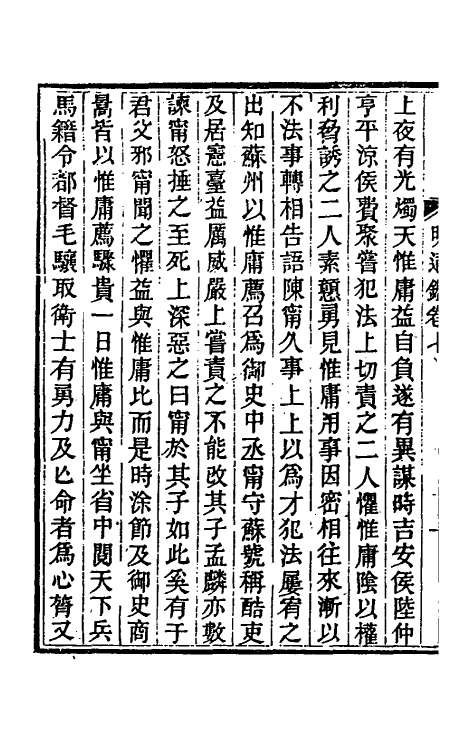 明通鑑卷七
上夜有光燭天惟庸益自負遂有異謀時吉安侯陸仲
亨平涼侯費聚嘗犯法上切責之二人懼惟庸陰以權
利脅誘之二人素戇勇見惟庸用事因密相往來漸以
不法事轉相告語陳甯久事上上以爲才犯法屢宥之
出知蘇州以惟庸薦召爲御史中丞甯守蘇號稱酷吏
及居憲臺益厲威嚴上嘗責之不能改其子孟麟亦數
諫甯怒捶之至死上深惡之曰甯於其子如此奚有于
君父邪甯聞之懼益與惟庸比而是時涂節及御史商
暠皆以惟庸薦驟貴一日惟庸與甯坐省中閱天下兵
馬籍令都督毛驤取衛士有勇力及亡命者爲心膂又